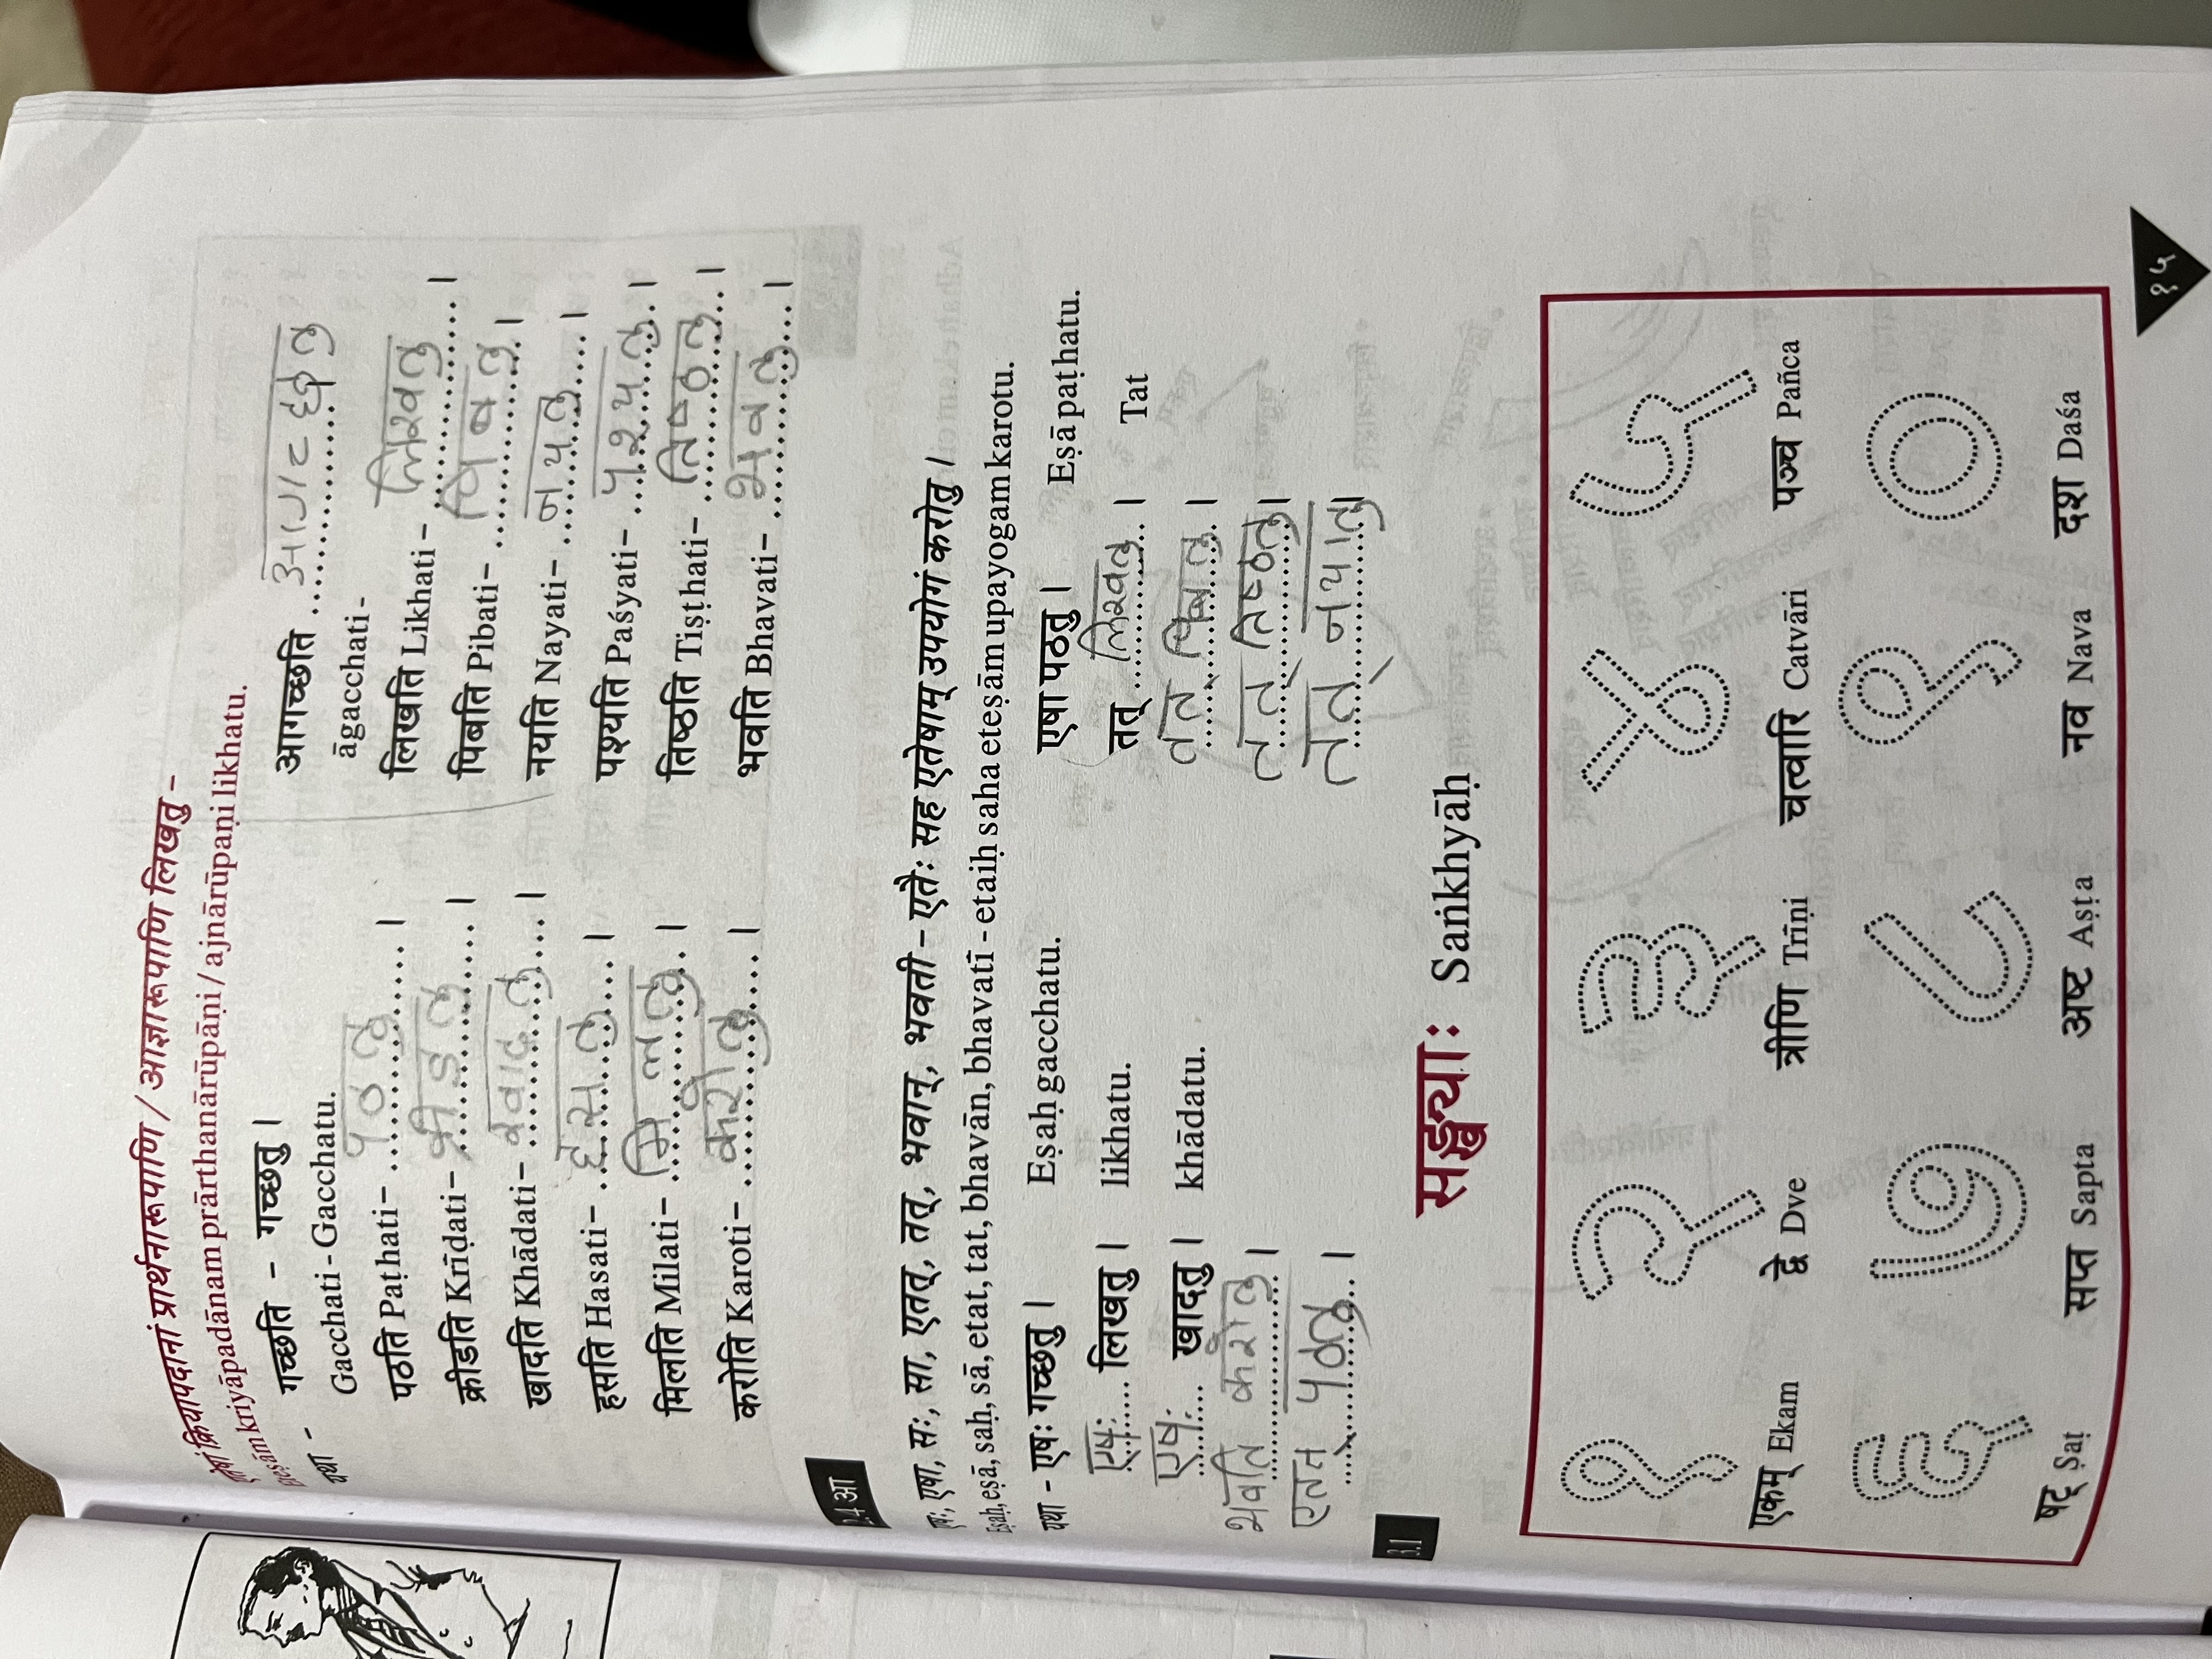 एतेषां क्रियापदानां प्रार्थनारूपाणि / आज्ञारूपाणि लिखतु -
Eteṣām kriyāpadānam prārthanārūpāṇi / ajnārūpaṇi likhatu.
यथा - गच्छति - गच्छतु ।
Gacchati - Gacchatu.
पठति Paṭhati- पठतु ।
क्रीडति Krīḍati- क्रीडतु ।
खादति Khādati- खादतु ।
हसति Hasati- हसतु ।
मिलति Milati- मिलतु ।
करोति Karoti- करोतु ।
आगच्छति आगच्छतु ।
āgacchati -
लिखति Likhati - लिखतु ।
पिबति Pibati- पिबतु ।
नयति Nayati- नयतु ।
पश्यति Paśyati- पश्यतु ।
तिष्ठति Tiṣṭhati- तिष्ठतु ।
भवति Bhavati- भवतु ।
2.4 आ
एषः, एषा, सः, सा, एतत्, तत्, भवान्, भवती - एतैः सह एतेषाम् उपयोगं करोतु ।
Eṣaḥ, eṣā, saḥ, sā, etat, tat, bhavān, bhavatī - etaiḥ saha eteṣām upayogam karotu.
यथा - एषः गच्छतु । Eṣaḥ gacchatu. एषा पठतु । Eṣā paṭhatu.
एषः लिखतु । likhatu. तत् लिखतु । Tat
एषः खादतु । khādatu. तत् पिबतु ।
भवति करोतु । तत् तिष्ठतु ।
एतत् पठतु । तत् नयातु ।
3.1
सङ्ख्याः Saṅkhyāḥ
१ २ ३ ४ ५
एकम् Ekam द्वे Dve त्रीणि Trīṇi चत्वारि Catvāri पञ्च Pañca
६ ७ ८ ९ ०
षट् Ṣaṭ सप्त Sapta अष्ट Aṣṭa नव Nava दश Daśa
१५